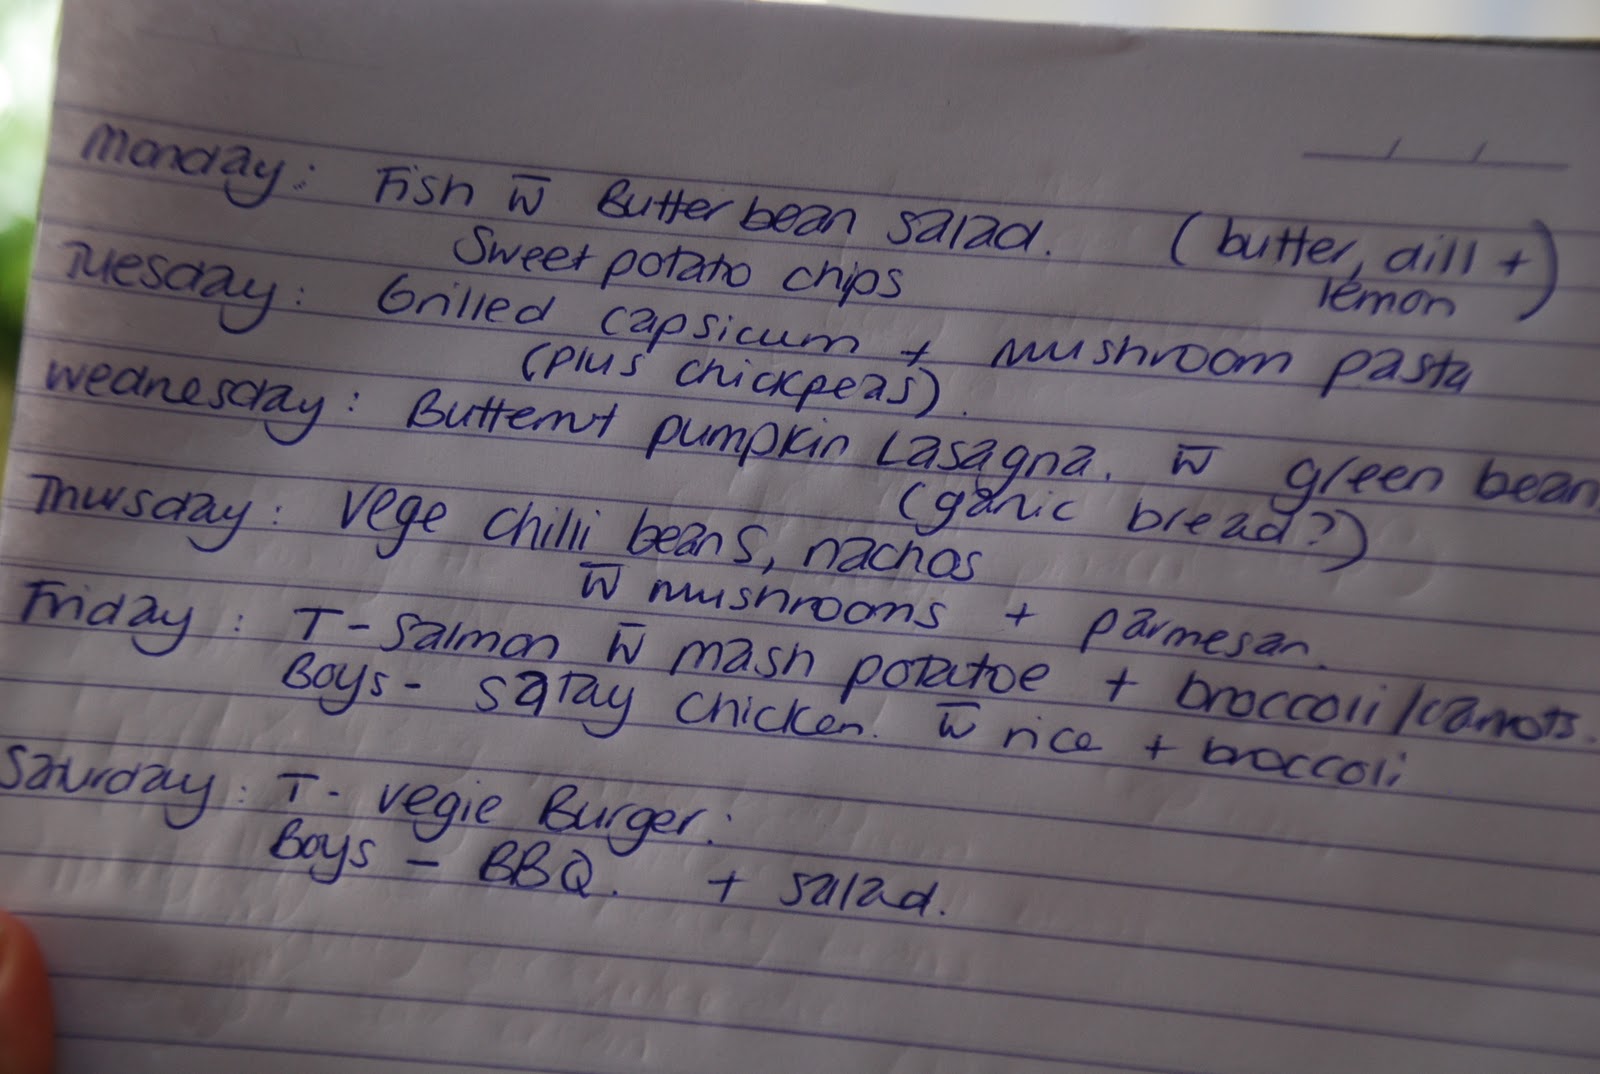 Monday: Fish w̄ Butter bean salad. (butter, dill +
Sweet potato chips lemon)
Tuesday: Grilled capsicum + mushroom pasta
(plus chickpeas).
Wednesday: Butternut pumpkin Lasagna. w̄ green bean
(garlic bread?)
Thursday: Vege chilli beans, nachos
w̄ mushrooms + parmesan.
Friday: T - Salmon w̄ mash potatoe + broccoli/carrots.
Boys - Satay chicken. w̄ rice + broccoli
Saturday: T - Vegie Burger.
Boys - BBQ. + salad.